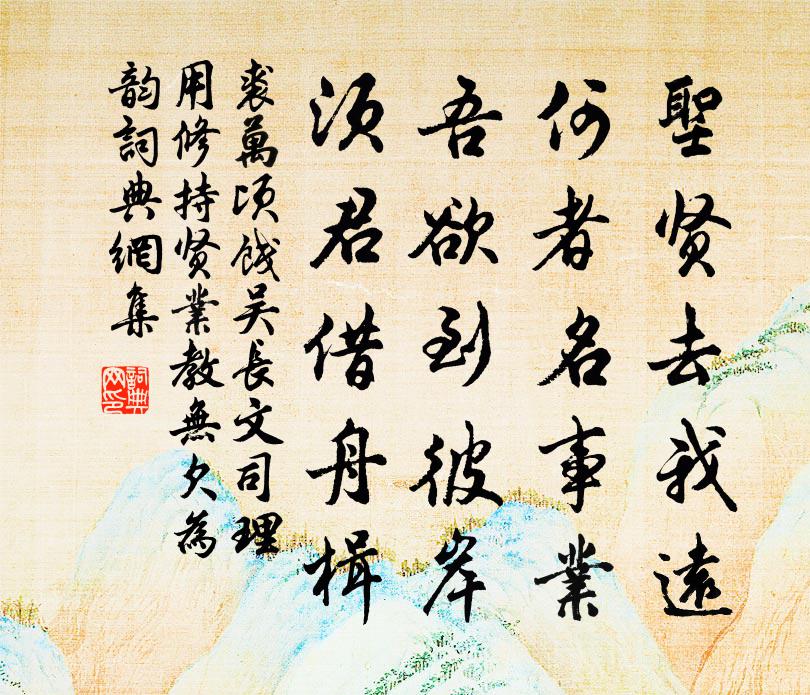 聖贤去我遠
何者名事業
吾欲到彼岸
须君借舟楫
裘萬顷餞吴長文司理
用修持贤業教無欠為
韵詞典網集
詞典网印